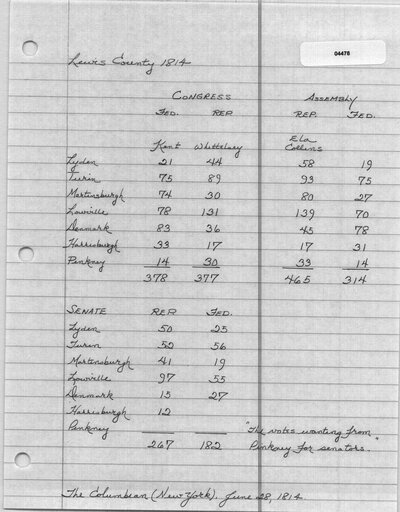 04478
Lewis County 1814
CONGRESS ASSEMBLY
FED. REP REP. FED.
Kent Whittelsey Ela Collins
Leyden 21 44 58 19
Turin 75 89 93 75
Martinsburgh 74 30 80 27
Lowville 78 131 139 70
Denmark 83 36 45 78
Harrisburgh 33 17 17 31
Pinkney 14 30 33 14
378 377 465 314
SENATE REP FED.
Leyden 50 25
Turin 52 56
Martinsburgh 41 19
Lowville 97 55
Denmark 15 27
Harrisburgh 12
Pinkney "The votes wanting from
267 182 Pinkney for senators."
The Columbian (New York). June 28, 1814